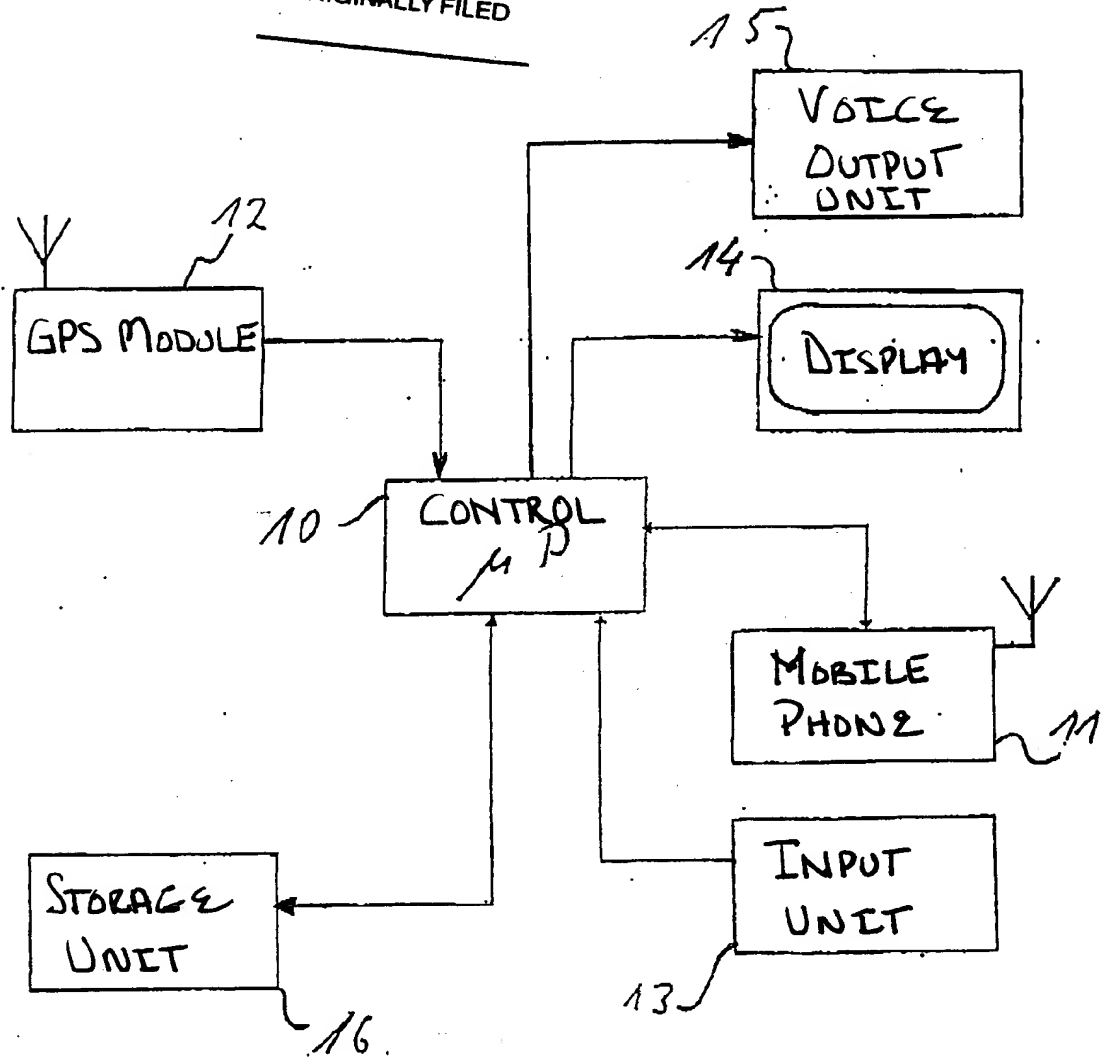 ORIGINALLY FILED
15
VOICE
OUTPUT
UNIT
12
GPS MODULE
14
DISPLAY
10
CONTROL
μP
MOBILE
PHONE
11
STORAGE
UNIT
INPUT
UNIT
13
16.